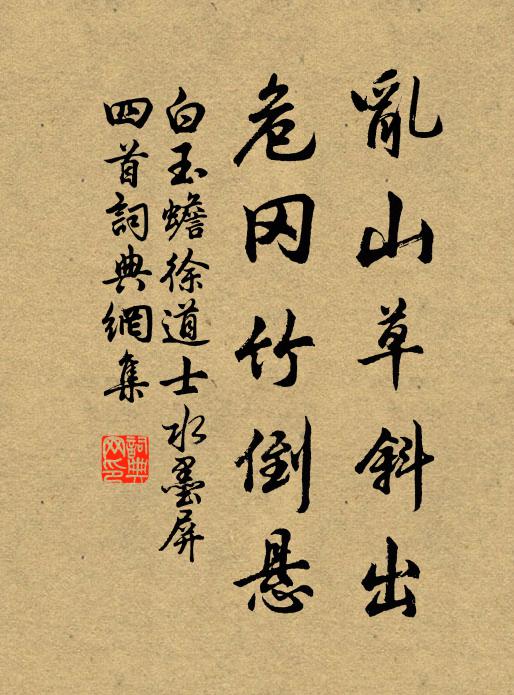 亂山草斜出
危冈竹倒悬
白玉蟾徐道士水墨屏
四首詞典網集
詞典
网印